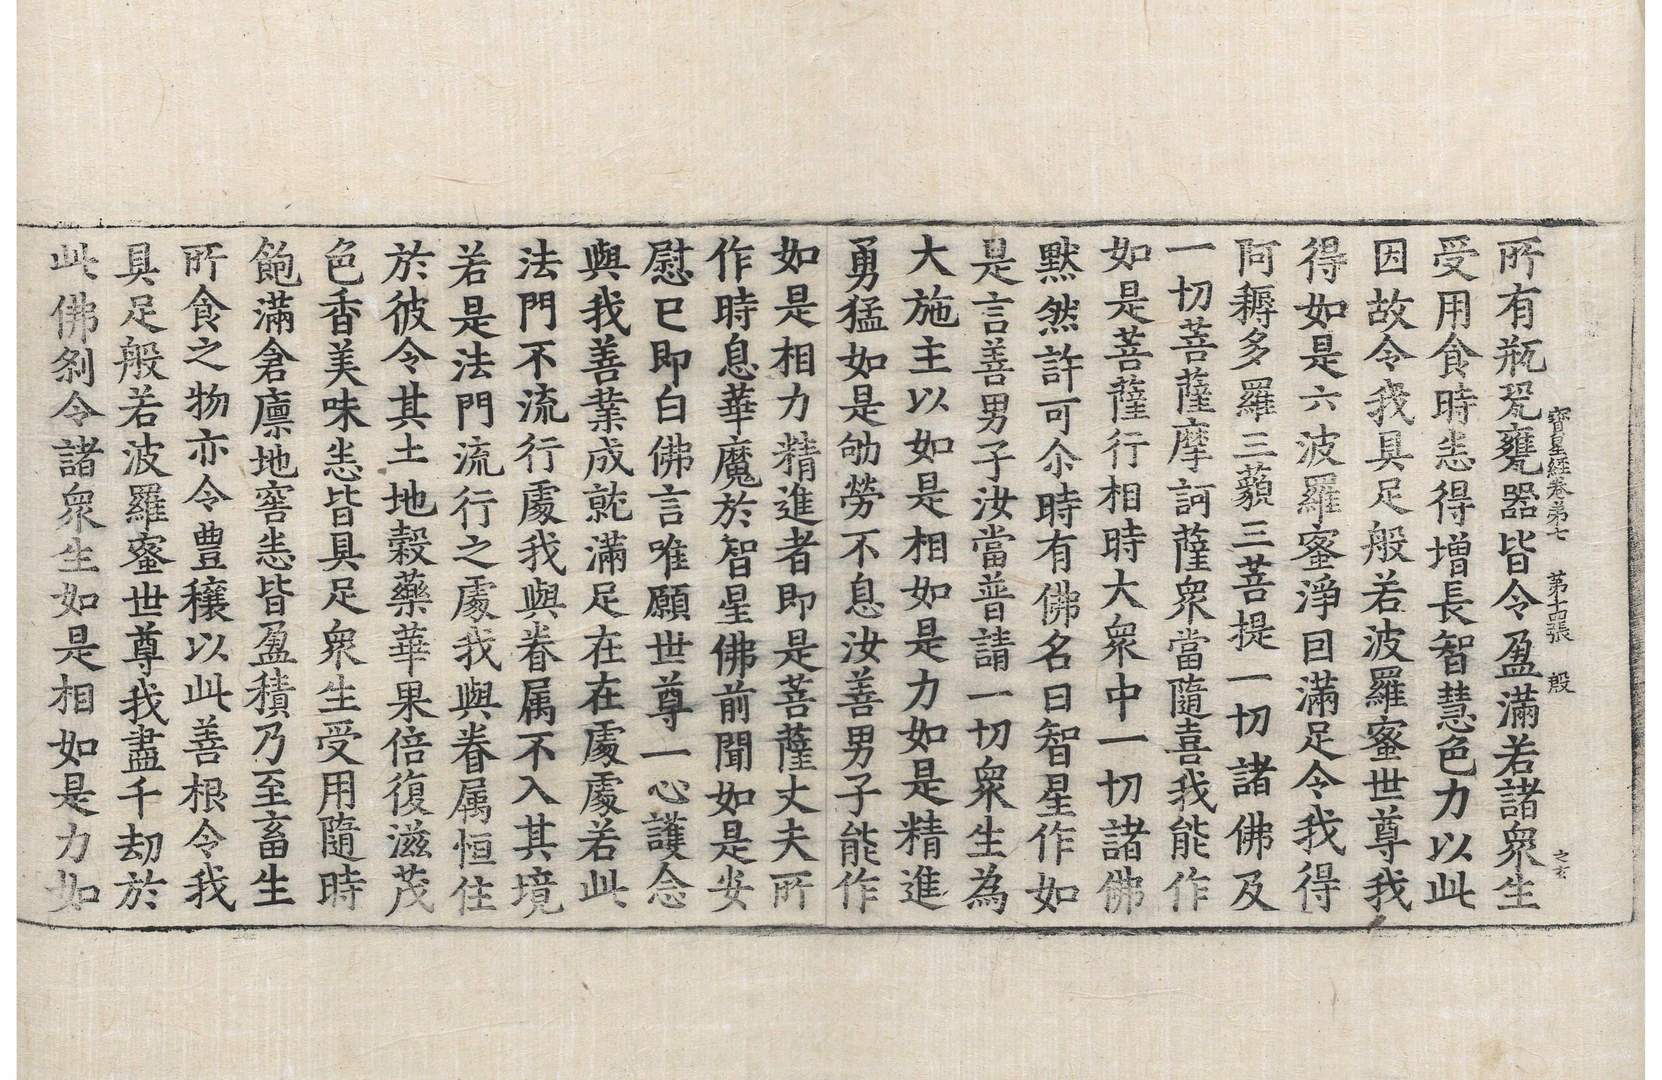 寶星經卷第七 第十四張 殷
所有瓶瓮甕器皆令盈滿若諸衆生
受用食時恚得增長智慧色力以此
因故令我具足般若波羅蜜世尊我
得如是六波羅蜜淨因滿足令我得
阿耨多羅三藐三菩提一切諸佛及
一切菩薩摩訶薩衆當隨喜我能作
如是菩薩行相時大衆中一切諸佛
默然許可尒時有佛名曰智星作如
是言善男子汝當普請一切衆生為
大施主以如是相如是力如是精進
勇猛如是劬勞不息汝善男子能作
如是相力精進者即是菩薩丈夫所
作時息華魔於智星佛前聞如是安
慰已即白佛言唯願世尊一心護念
與我善業成就滿足在在處處若此
法門不流行處我與眷属不入其境
若是法門流行之處我與眷属恒住
於彼令其土地穀藥華果倍復滋茂
色香美味恚皆具足衆生受用隨時
飽滿倉廪地窖恚皆盈積乃至畜生
所食之物亦令豊穰以此善根令我
具足般若波羅蜜世尊我盡千劫於
此佛刹令諸衆生如是相如是力如